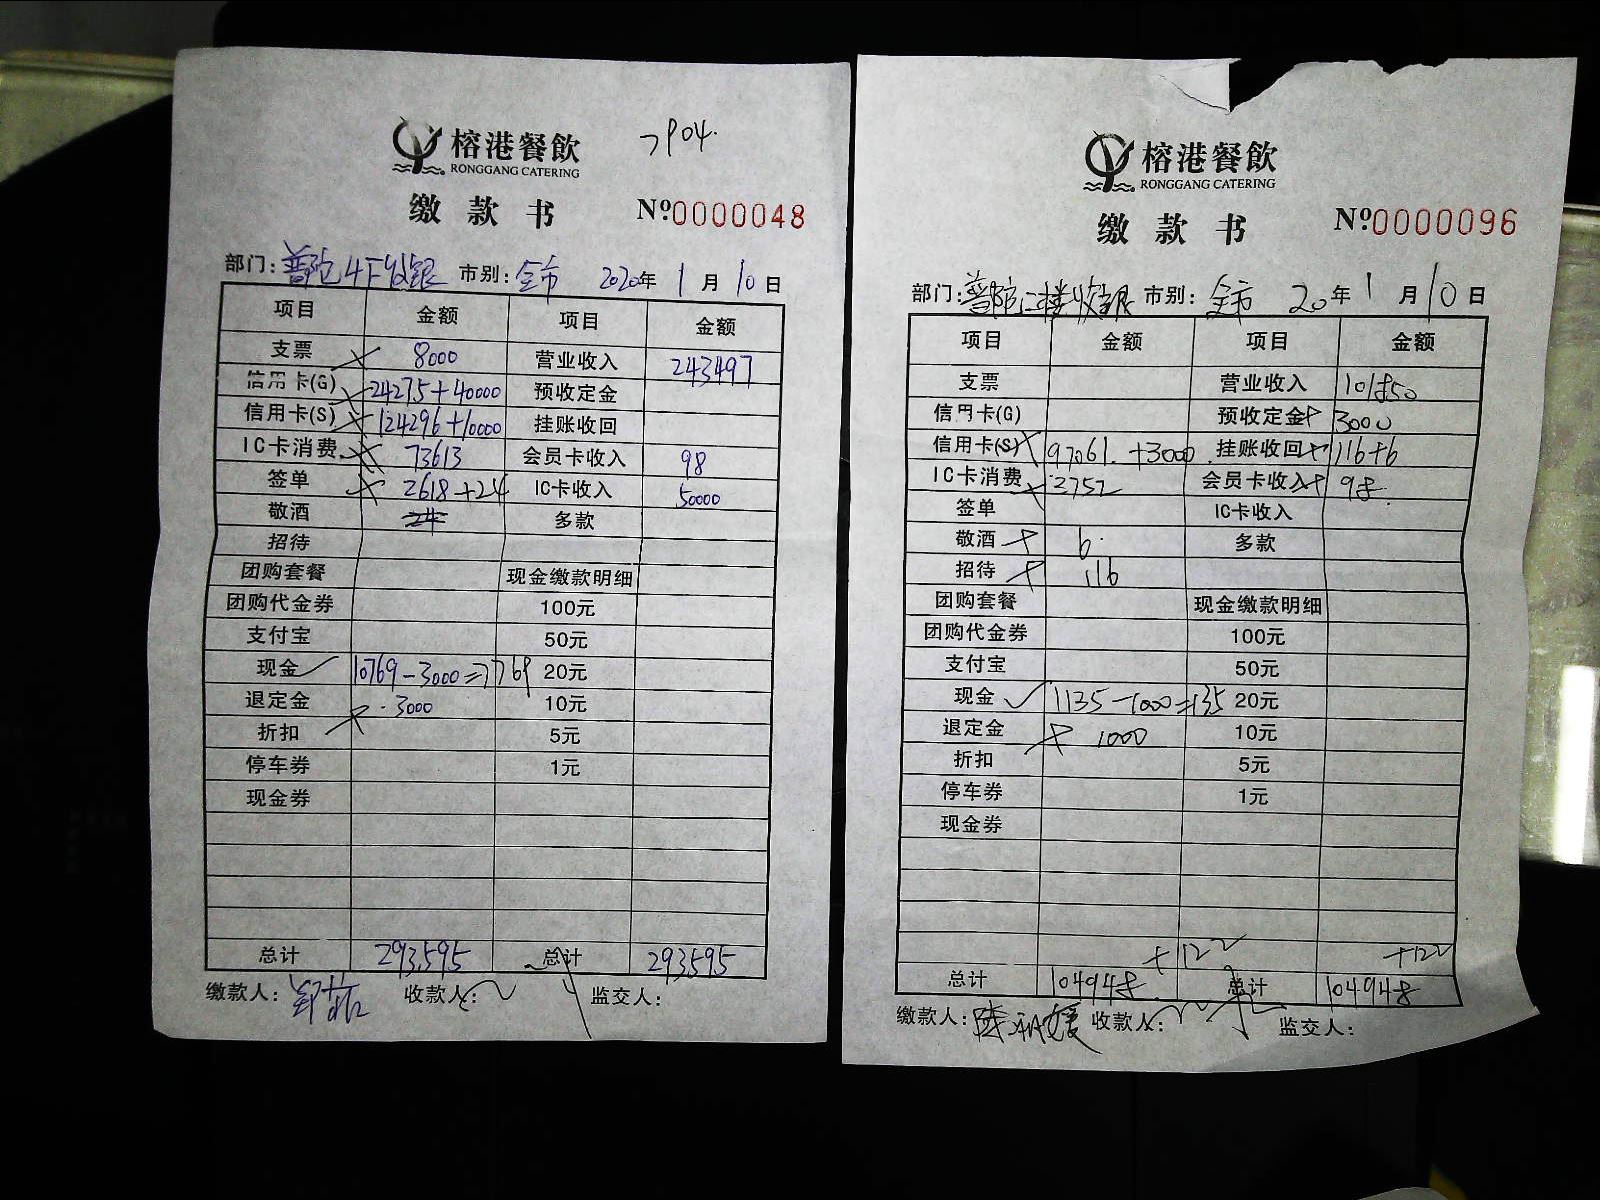 榕港餐飲 7904.
RONGGANG CATERING
缴款书 №0000048
部门:普陀4F收银 市别:全市 2020年1月10日
项目 金额 项目 金额
支票 8000 营业收入 243497
信用卡(G) 24275+40000 预收定金
信用卡(S) 124296+10000 挂账收回
IC卡消费 73613 会员卡收入 98
签单 2618+24 IC卡收入 50000
敬酒 24 多款
招待
团购套餐 现金缴款明细
团购代金券 100元
支付宝 50元
现金 10769-3000=7769 20元
退定金 3000 10元
折扣 5元
停车券 1元
现金券
总计 293595 总计 293595
缴款人: 收款人: 监交人:
榕港餐飲
RONGGANG CATERING
缴款书 №0000096
部门:普陀二楼收银 市别:全市 20年1月10日
项目 金额 项目 金额
支票 营业收入 101850
信用卡(G) 预收定金 3000
信用卡(S) 97061.+3000. 挂账收回 116+6
IC卡消费 3752 会员卡收入 98.
签单 IC卡收入
敬酒 6. 多款
招待 116
团购套餐 现金缴款明细
团购代金券 100元
支付宝 50元
现金 1135-1000=135 20元
退定金 1000 10元
折扣 5元
停车券 1元
现金券
+122 +122
总计 104948 总计 104948
缴款人: 收款人: 监交人: